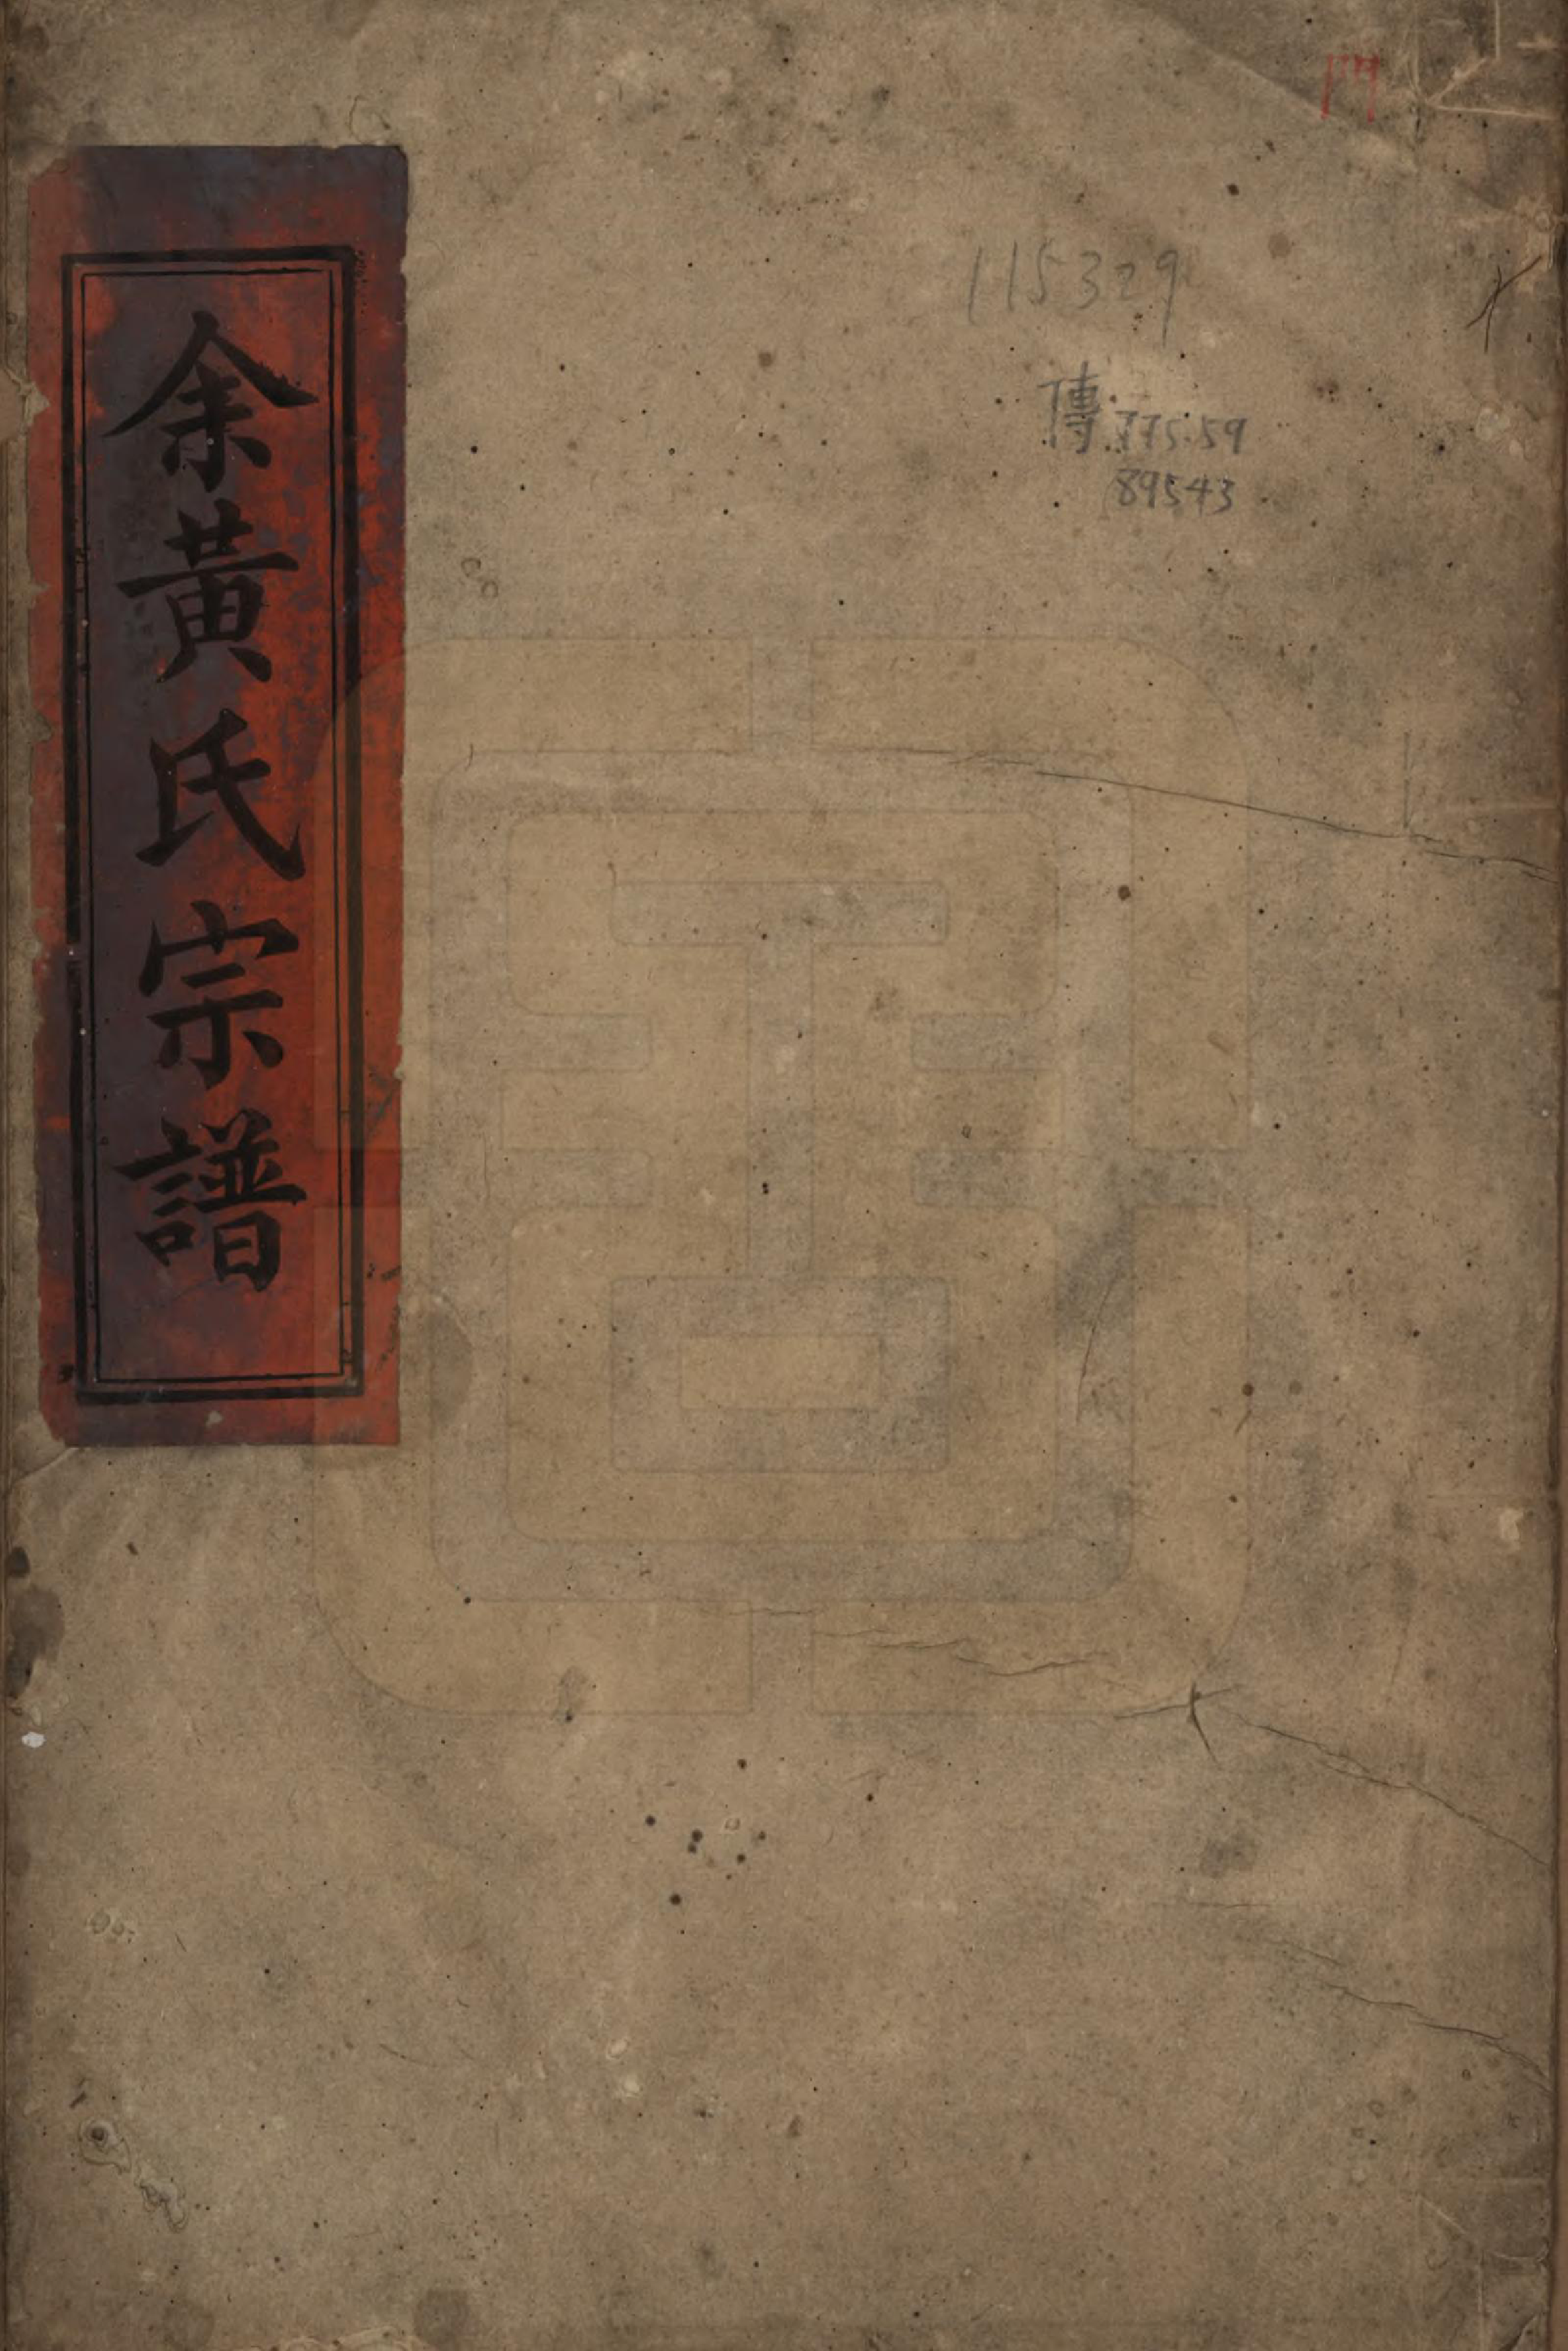 余黃氏宗譜
115329
傳 775.59
89543